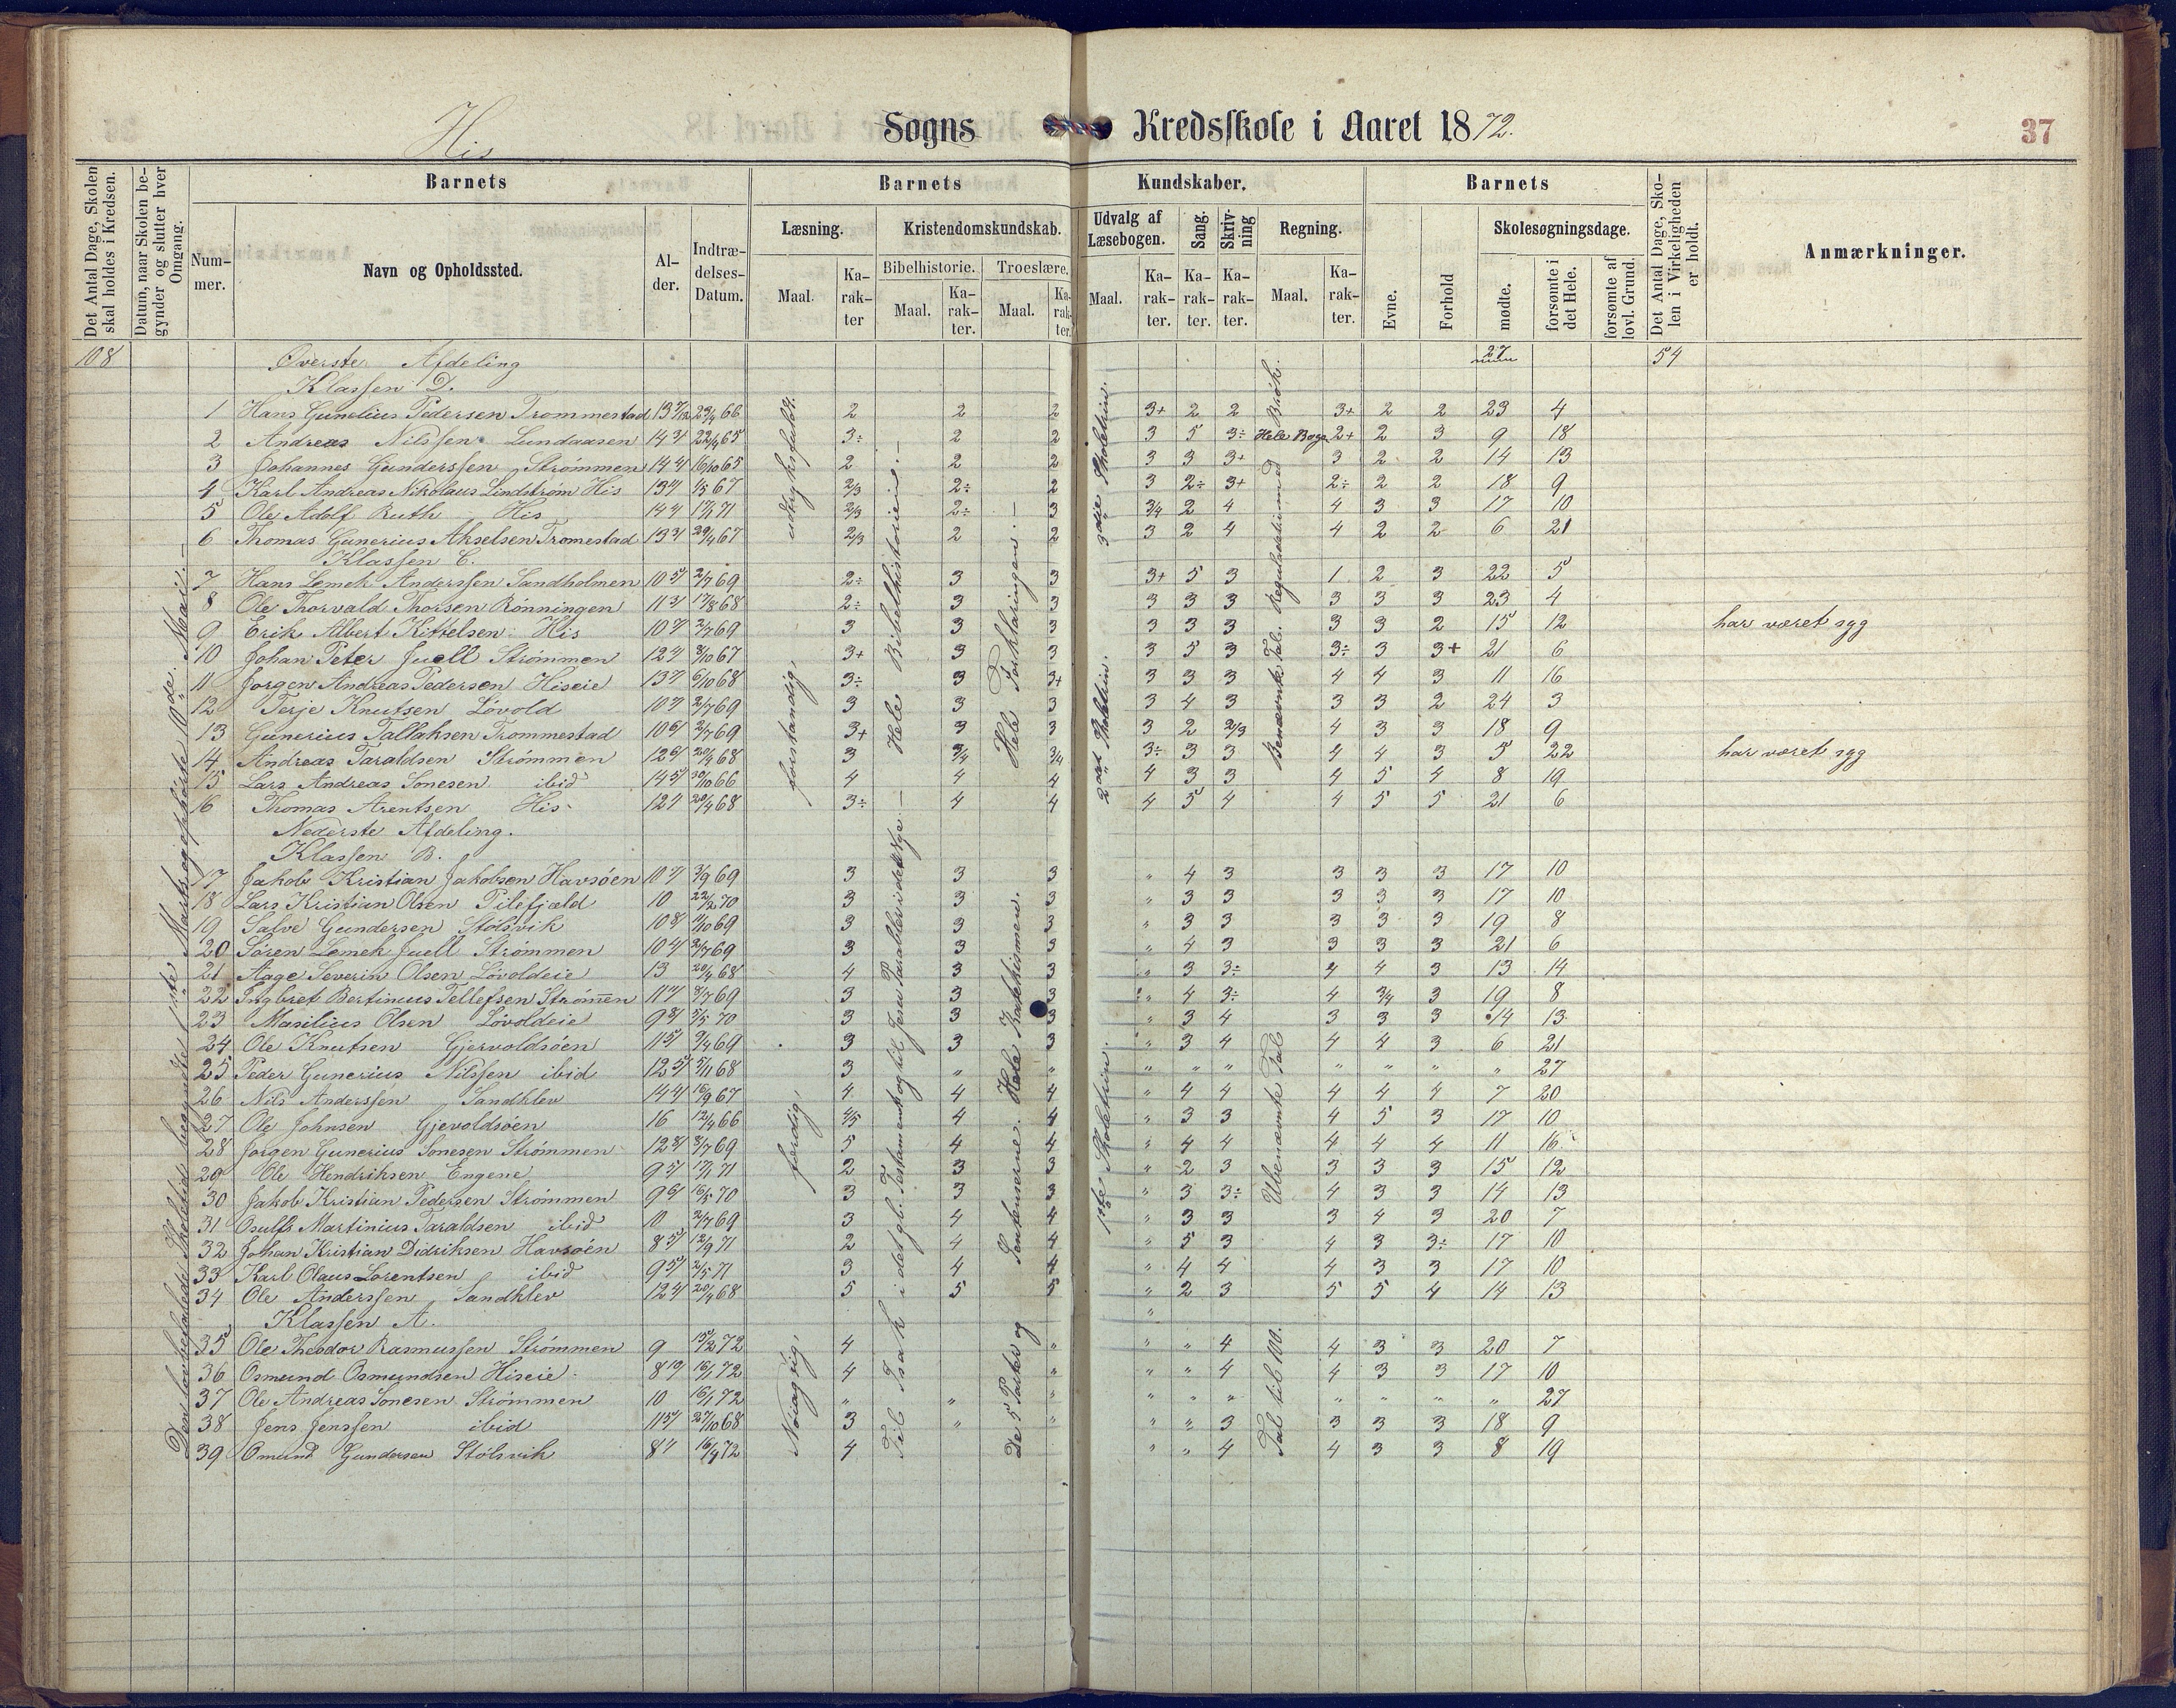 His Sogns Kredsskole i Aaret 1872. 37
Det Antal Dage, Skolen skal holdes i Kredsen.
Datum, naar Skolen begynder og slutter hver Omgang.
Barnets Barnets Kundskaber. Barnets
Det Antal Dage, Skolen i Virkeligheden er holdt.
Anmærkninger.
Nummer. Navn og Opholdssted. Alder. Indtrædelses-Datum.
Læsning. Kristendomskundskab. Udvalg af Læsebogen. Sang. Skrivning Regning. Evne. Forhold Skolesøgningsdage.
Bibelhistorie. Troeslære.
Maal. Karakter Maal. Karakter. Maal. Karakter. Maal. Karakter. Karakter. Karakter. Maal. Karakter. mødte. forsømte i det Hele. forsømte af lovl. Grund.
108 Øverste Afdeling 27 54
Klassen D.
1 Hans Gunelius Pedersen Trommestad 2 2 2 3+ 2 2 3+ 2 2 23 4
2 Andreas Nilssen Lundaasen 3÷ 2 2 3 5 3÷ Hele Boge 2+ 2 3 9 18
3 Johannes Gunderssen Strømmen 2 2 2 3 3 3+ 3 2 2 14 13
4 Karl Andreas Nikolaus Lindstrøm His 2/3 2÷ 2 3 2÷ 3+ 2÷ 2 2 18 9
5 Ole Adolf Ruth His 2/3 2÷ 3 3/4 2 4 4 3 3 17 10
6 Thomas Gunerius Akselsen Tromestad 2/3 2 2 3 2 4 4 2 2 6 21
Klassen C.
7 Hans Lemek Anderssen Sandholmen 2/7 69 2÷ 3 3 3+ 5 3 1 2 3 22 5
8 Ole Thorvald Thorsen Rønningen 17/8 68 2÷ 3 3 3 3 3 3 3 3 23 4
9 Erik Albert Kittelsen His 2/7 69 3 3 3 3 3 3 3 3 2 15 12 har været syg
10 Johan Peter Juell Strømmen 8/10 67 3+ 3 3 3 5 3 3÷ 3 3+ 21 6
11 Jørgen Andreas Pedersen Hiseie 6/10 68 3÷ 3 3+ 3 3 3 4 4 3 11 16
12 Terje Knutsen Løvold 2/7 69 3 3 3 3 4 3 3 3 2 24 3
13 Gunerius Tallaksen Trommestad 2/7 69 3+ 3 3 3 2 2/3 4 3 3 18 9
14 Andreas Taraldsen Strømmen 20/4 68 3 3/4 3/4 3÷ 3 3 4 4 3 5 22 har været syg
15 Lars Andreas Sonesen ibid 30/10 66 4 4 4 4 3 3 4 5 4 8 19
16 Thomas Arentsen His 20/4 68 3÷ 4 4 4 5 4 4 5 5 21 6
Nederste Afdeling.
Klassen B.
17 Jakob Kristian Jakobsen Havsøen 3/9 69 3 3 3 " 4 3 3 3 3 17 10
18 Lars Kristian Olsen Pilefjæld 10 22/2 70 3 3 3 " 3 3 3 3 3 17 10
19 Salve Gundersen Stølsvik 11/10 69 3 3 3 " 3 3 3 3 3 19 8
20 Søren Lemek Juell Strømmen 2/7 69 3 3 3 " 4 3 3 3 3 21 6
21 Aage Severin Olsen Løvoldeie 13 20/4 68 4 3 3 " 3 3÷ 4 4 3 13 14
22 Ingbret Bertinius Tellefsen Strømen 8/7 69 3 3 3 " 4 3÷ 4 3/4 3 19 8
23 Masilius Olsen Løvoldeie 5/5 70 3 3 3 " 3 4 3 3 3 14 13
24 Ole Knutsen Gjervoldsøen 9/4 69 3 3 3 " 3 4 4 4 3 6 21
25 Peder Gunerius Nilssen ibid 5/11 68 3 " " " " " " " " " 27
26 Nils Anderssen Sandklev 16/9 67 4 4 4 " 4 4 4 4 4 7 20
27 Ole Johnsen Gjevoldsøen 16 12/4 66 4/5 4 4 " 3 3 4 5 3 17 10
28 Jørgen Gunerius Sonesen Strømmen 8/7 69 5 4 4 " 4 4 4 4 4 11 16
29 Ole Hendriksen Engene 17/1 71 2 3 3 " 2 3 3 3 3 15 12
30 Jakob Kristian Pedersen Strømmen 16/5 70 3 3 3 " 3 3÷ 4 3 3 14 13
31 Osulff Martinius Taraldsen ibid 10 2/7 69 3 4 4 " 3 3 3 4 3 20 7
32 Johan Kristian Didriksen Havsøen 12/9 71 2 4 4 " 5 3 4 3 3÷ 17 10
33 Karl Olaus Lorentsen ibid 2/5 71 3 4 4 " 4 4 4 3 3 17 10
34 Ole Anderssen Sandklev 20/4 68 5 5 5 " 2 3 5 5 4 14 13
Klassen A. "
35 Ole Theodor Rasmussen Strømmen 9 72 4 " " " 4 4 3 3 20 7
36 Osmund Osmundsen Hiseie 16/1 72 4 " " " 4 4 3 3 17 10
37 Ole Andreas Sonesen Strømmen 10 16/1 72 " " " " " " " " " " 27
38 Jens Jenssen ibid 27/10 68 3 " " " " 3 3 3 3 18 9
39 Omund Gundersen Stølsvik 72 4 " " 4 4 3 3 8 19
Den lovbefalede Skoletid begyndte 1ste Marts og ophørte 10de Mai.
udtryksfuldt.
forstandig,
færdig,
Nøiagtig,
Hele Bibelhistorien.
Til Isak i det gl. Testament og til Jesu Parabler i det nye.
Hele Forklaringen.
De 5 Parter og Sentenserne. Hele Katekismen.
3die Skoletrin.
2det Skoletrin.
1ste Skoletrin.
Benævnte Tal. Reguladetri med Brøk.
Ubenævnte Tal
Tal til 100.